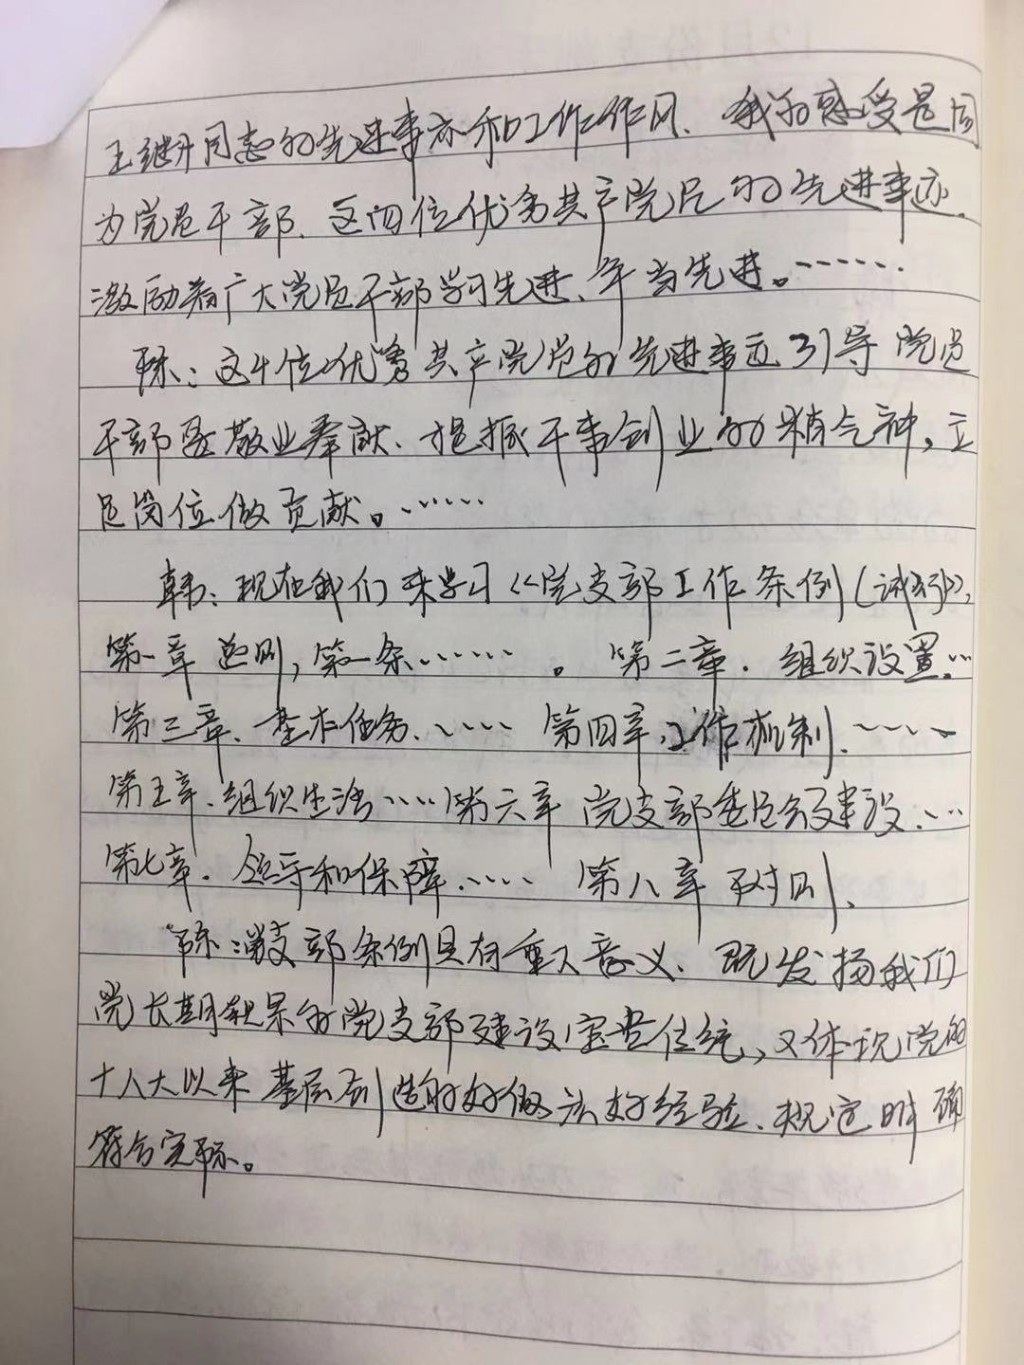 王继升同志的先进事迹和工作作风、我的感受是同
为党员干部、这四位优秀共产党员的先进事迹、
激励着广大党员干部学习先进、争当先进。……
陈：这4位优秀共产党员的先进事迹引导党员
干部爱敬业奉献、提振干事创业的精气神，立
足岗位做贡献。……
韩：现在我们来学习《党支部工作条例(试行)》，
第一章总则，第一条……。第二章．组织设置…
第三章、基本任务、…… 第四章、工作机制、……
第五章、组织生活……第六章 党支部委员会建设、…
第七章．领导和保障、…… 第八章 附则、
陈：支部条例具有重大意义、既发扬我们
党长期积累的党支部建设宝贵传统，又体现党的
十八大以来基层创造的好做法好经验、规定明确
符合实际。